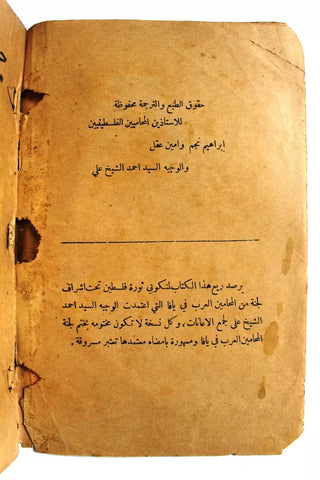 حقوق الطبع والترجمة محفوظة
للاستاذين المحاميين الفلسطينيين
ابراهيم نجم وامين عقل
والوجيه السيد احمد الشيخ علي
يرصد ريع هذا الكتاب لمنكوبي ثورة فلسطين تحت اشراف
لجنة من المحامين العرب في يافا التي اعتمدت الوجيه السيد احمد
الشيخ علي لجمع الاعانات، وكل نسخة لا تكون مختومه بختم لجنة
المحامين العرب في يافا وممهورة بامضاء معتمدها تعتبر مسروقة.